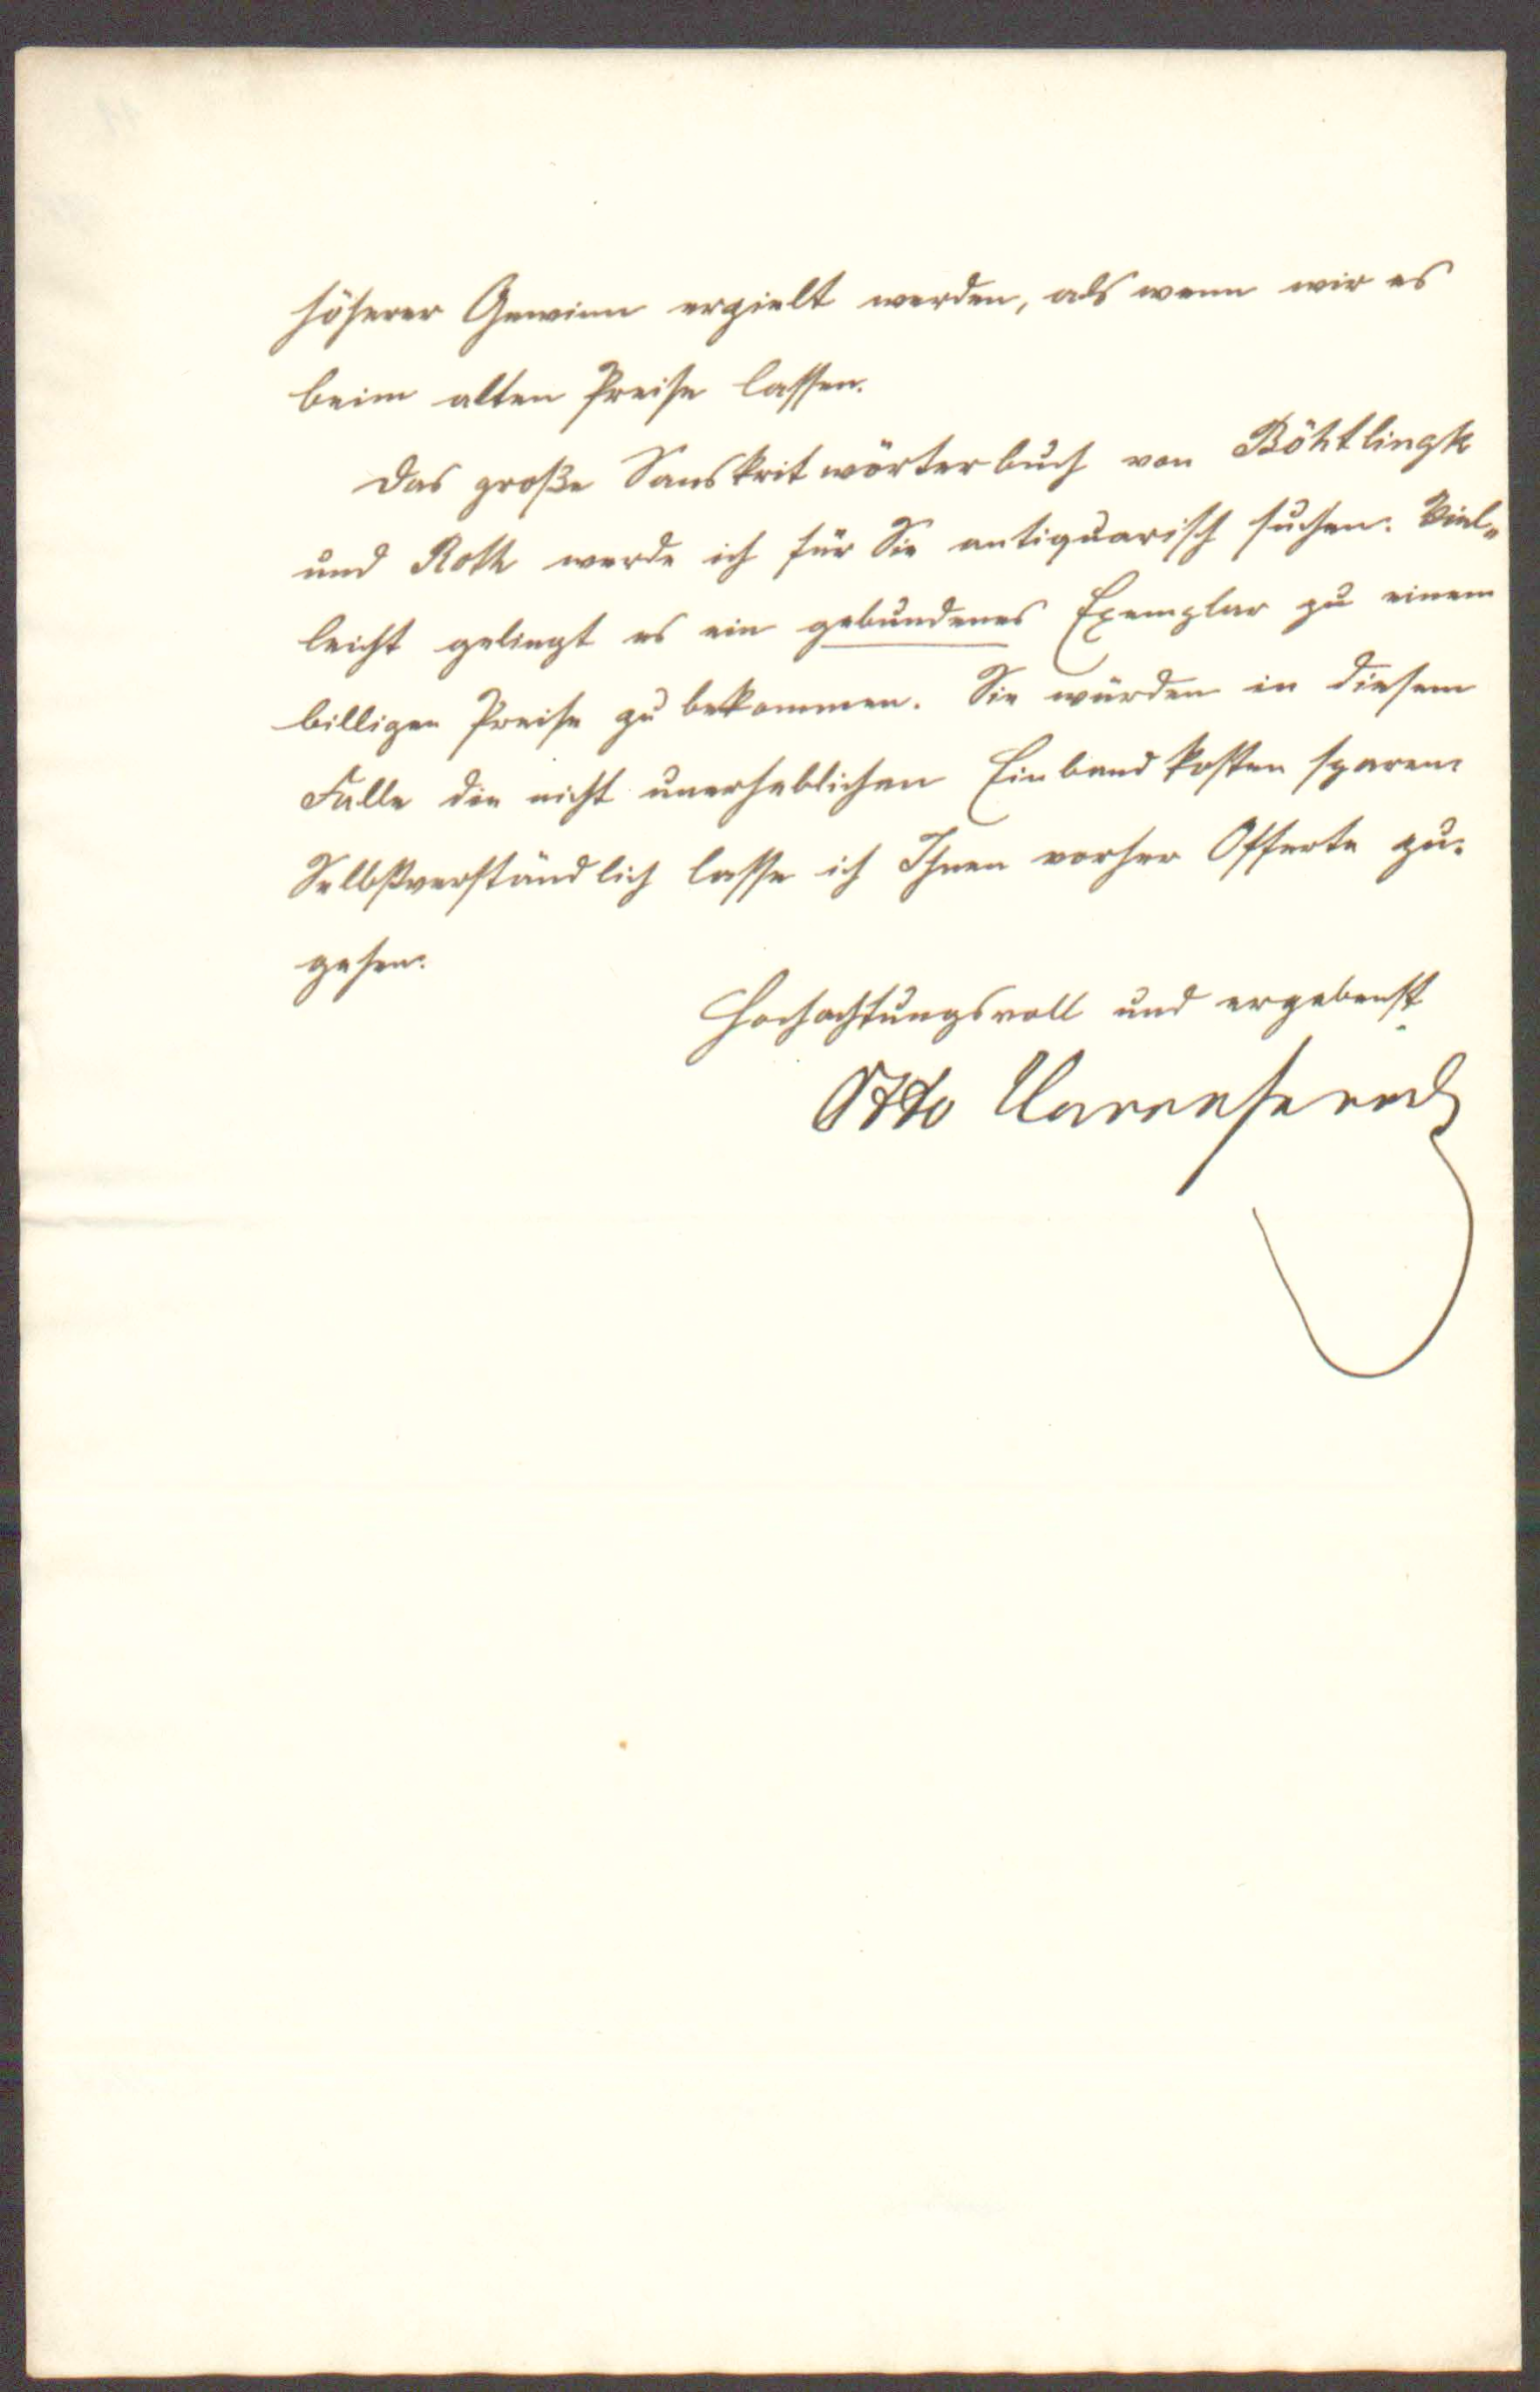 höherer Gewinn erzielt werden, als wenn wir es
beim alten Preise lassen.
Das große Sanskritwörterbuch von Böhtlingk
und Roth werde ich für Sie antiquarisch suchen. Viel-
leicht gelingt es ein gebundenes Exemplar zu einem
billigen Preise zu bekommen. Sie würden in diesem
Falle die nicht unerheblichen Einbandkosten sparen.
Selbstverständlich lasse ich Ihnen vorher Offerte zu-
gehen.
Hochachtungsvoll und ergebenst
Otto Harrassowitz